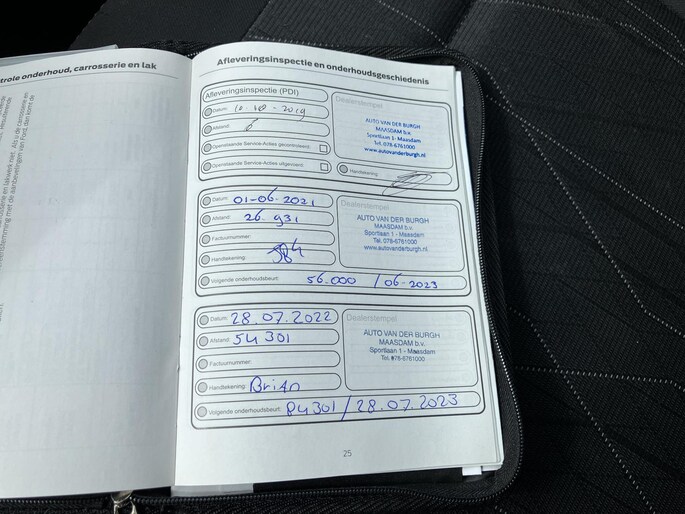 trole onderhoud, carrosserie en lak
Afleveringsinspectie en onderhoudsgeschiedenis
Afleveringsinspectie (PDI)
Dealerstempel
Datum: 10-10-2019
Afstand:
AUTO VAN DER BURGH
MAASDAM b.v.
Sportlaan 1- Maasdam
Tel. 078-6761000
www.autovanderburgh.nl
Openstaande Service-Acties gecontroleerd:
Openstaande Service-Acties uitgevoerd:
Handtekening:
Datum: 01-06-2021
Dealerstempel
Afstand: 26.931
Factuurnummer:
Handtekening:
AUTO VAN DER BURGH
MAASDAM b.v.
Sportlaan 1 - Maasdam
Tél. 078-6761000
www.autovanderburgh.nl
Volgende onderhoudsbeurt: 56.000 / 06-2023
Datum: 28.07.2022
Dealerstempel
Afstand: 54301
Factuurnummer:
Handtekening: Brian
AUTO VAN DER BURGH
MAASDAM b.v.
Sportlaan 1 - Maasdam
Tel. 078-6761000
Volgende onderhoudsbeurt: 84301 / 28.07.2023
25